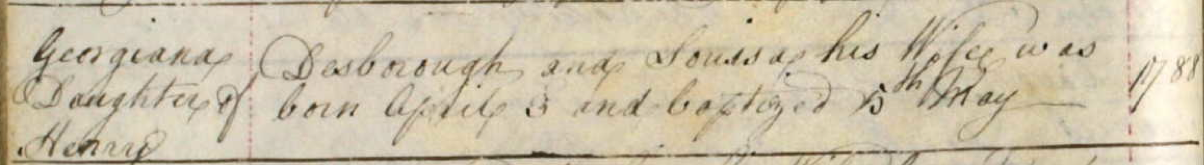 Georgiana
Daughter of
Henry
Desborough and Louisa his Wife was
born April 3 and baptized 15th May
1788